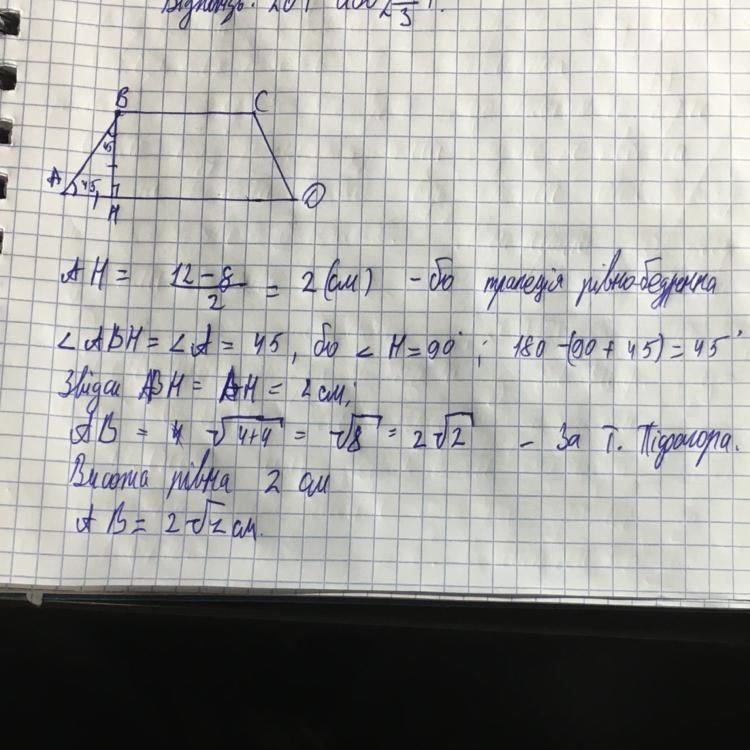 Відповідь:
B C
45
A 45 H D
AH = (12 - 8)/2 = 2 (см) - бо трапеція рівнобедренна
∠ABH = ∠A = 45, бо ∠H = 90°; 180 - (90 + 45) = 45°
Звідси BH = AH = 2 см;
AB = √4+4 = √8 = 2√2 - За Т. Піфагора.
Висота рівна 2 см
AB = 2√2 см.